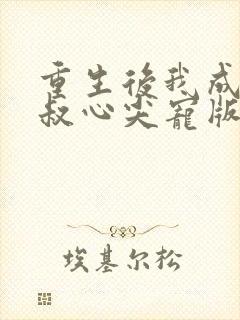 重生後我成
叔心尖寵版
埃基尔松